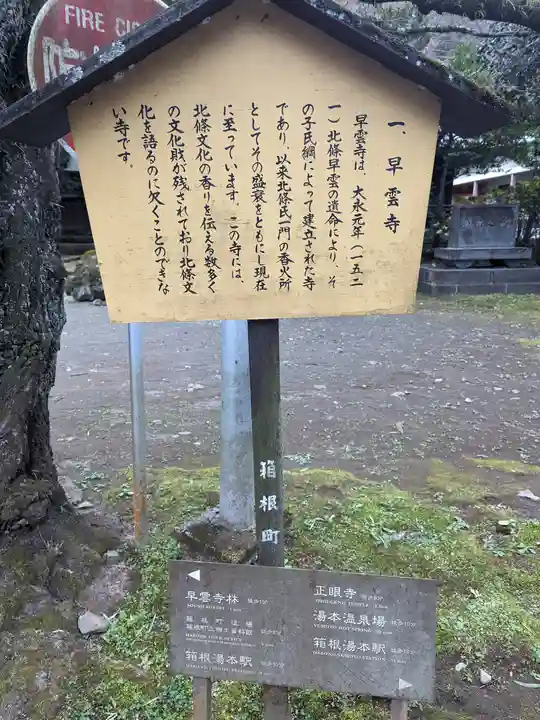 FIRE
一、早雲寺
早雲寺は、大永元年(一五二
一)北條早雲の遺命により、そ
の子氏綱によって建立された寺
であり、以来北條氏一門の香火所
としてその盛衰をともにし現在
に至っています。この寺には、
北條文化の香りを伝える数多く
の文化財が残されており北條文
化を語るのに欠くことのできな
い寺です。
箱根町
早雲寺林
箱根湯本駅
正眼寺
湯本温泉場
箱根湯本駅